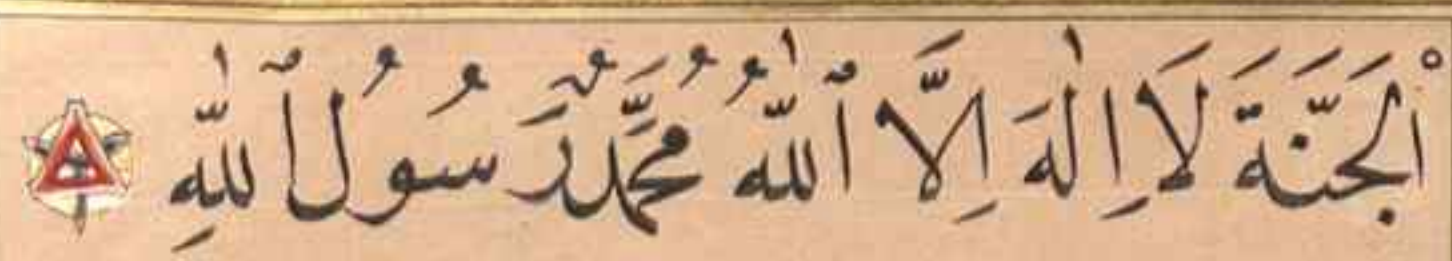 اْلجَنَّةَ لَا اِلٰهَ اِلَّا ٱللّٰهُ مُحَمَّدٌ رَسُولُ ٱللّٰهِ